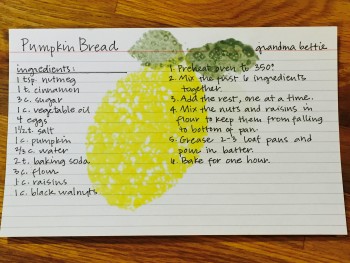 Pumpkin Bread
grandma bettie
ingredients:
1 tsp. nutmeg
1 t. cinnamon
3 c. sugar
1 c. vegetable oil
4 eggs
1 1/2 t. salt
1 c. pumpkin
2/3 c. water
2 t. baking soda
3 c. flour
1 c. raisins
1 c. black walnuts
1. Preheat oven to 350°
2. Mix the first 6 ingredients
together.
3. Add the rest, one at a time.
4. Mix the nuts and raisins in
flour to keep them from falling
to bottom of pan.
5. Grease 2-3 loaf pans and
pour in batter.
6. Bake for one hour.